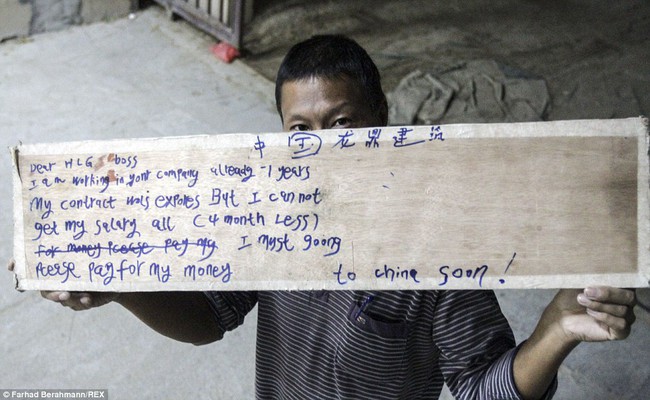 中国龙鼎建筑
Dear HLG boss
I am working in your company already -1 years
My contract wois expores But I can not
get my salary all (4 month Less)
for money Please pay my I myst goong
Please pay for My money to china soon!
© Farhad Berahmann/REX